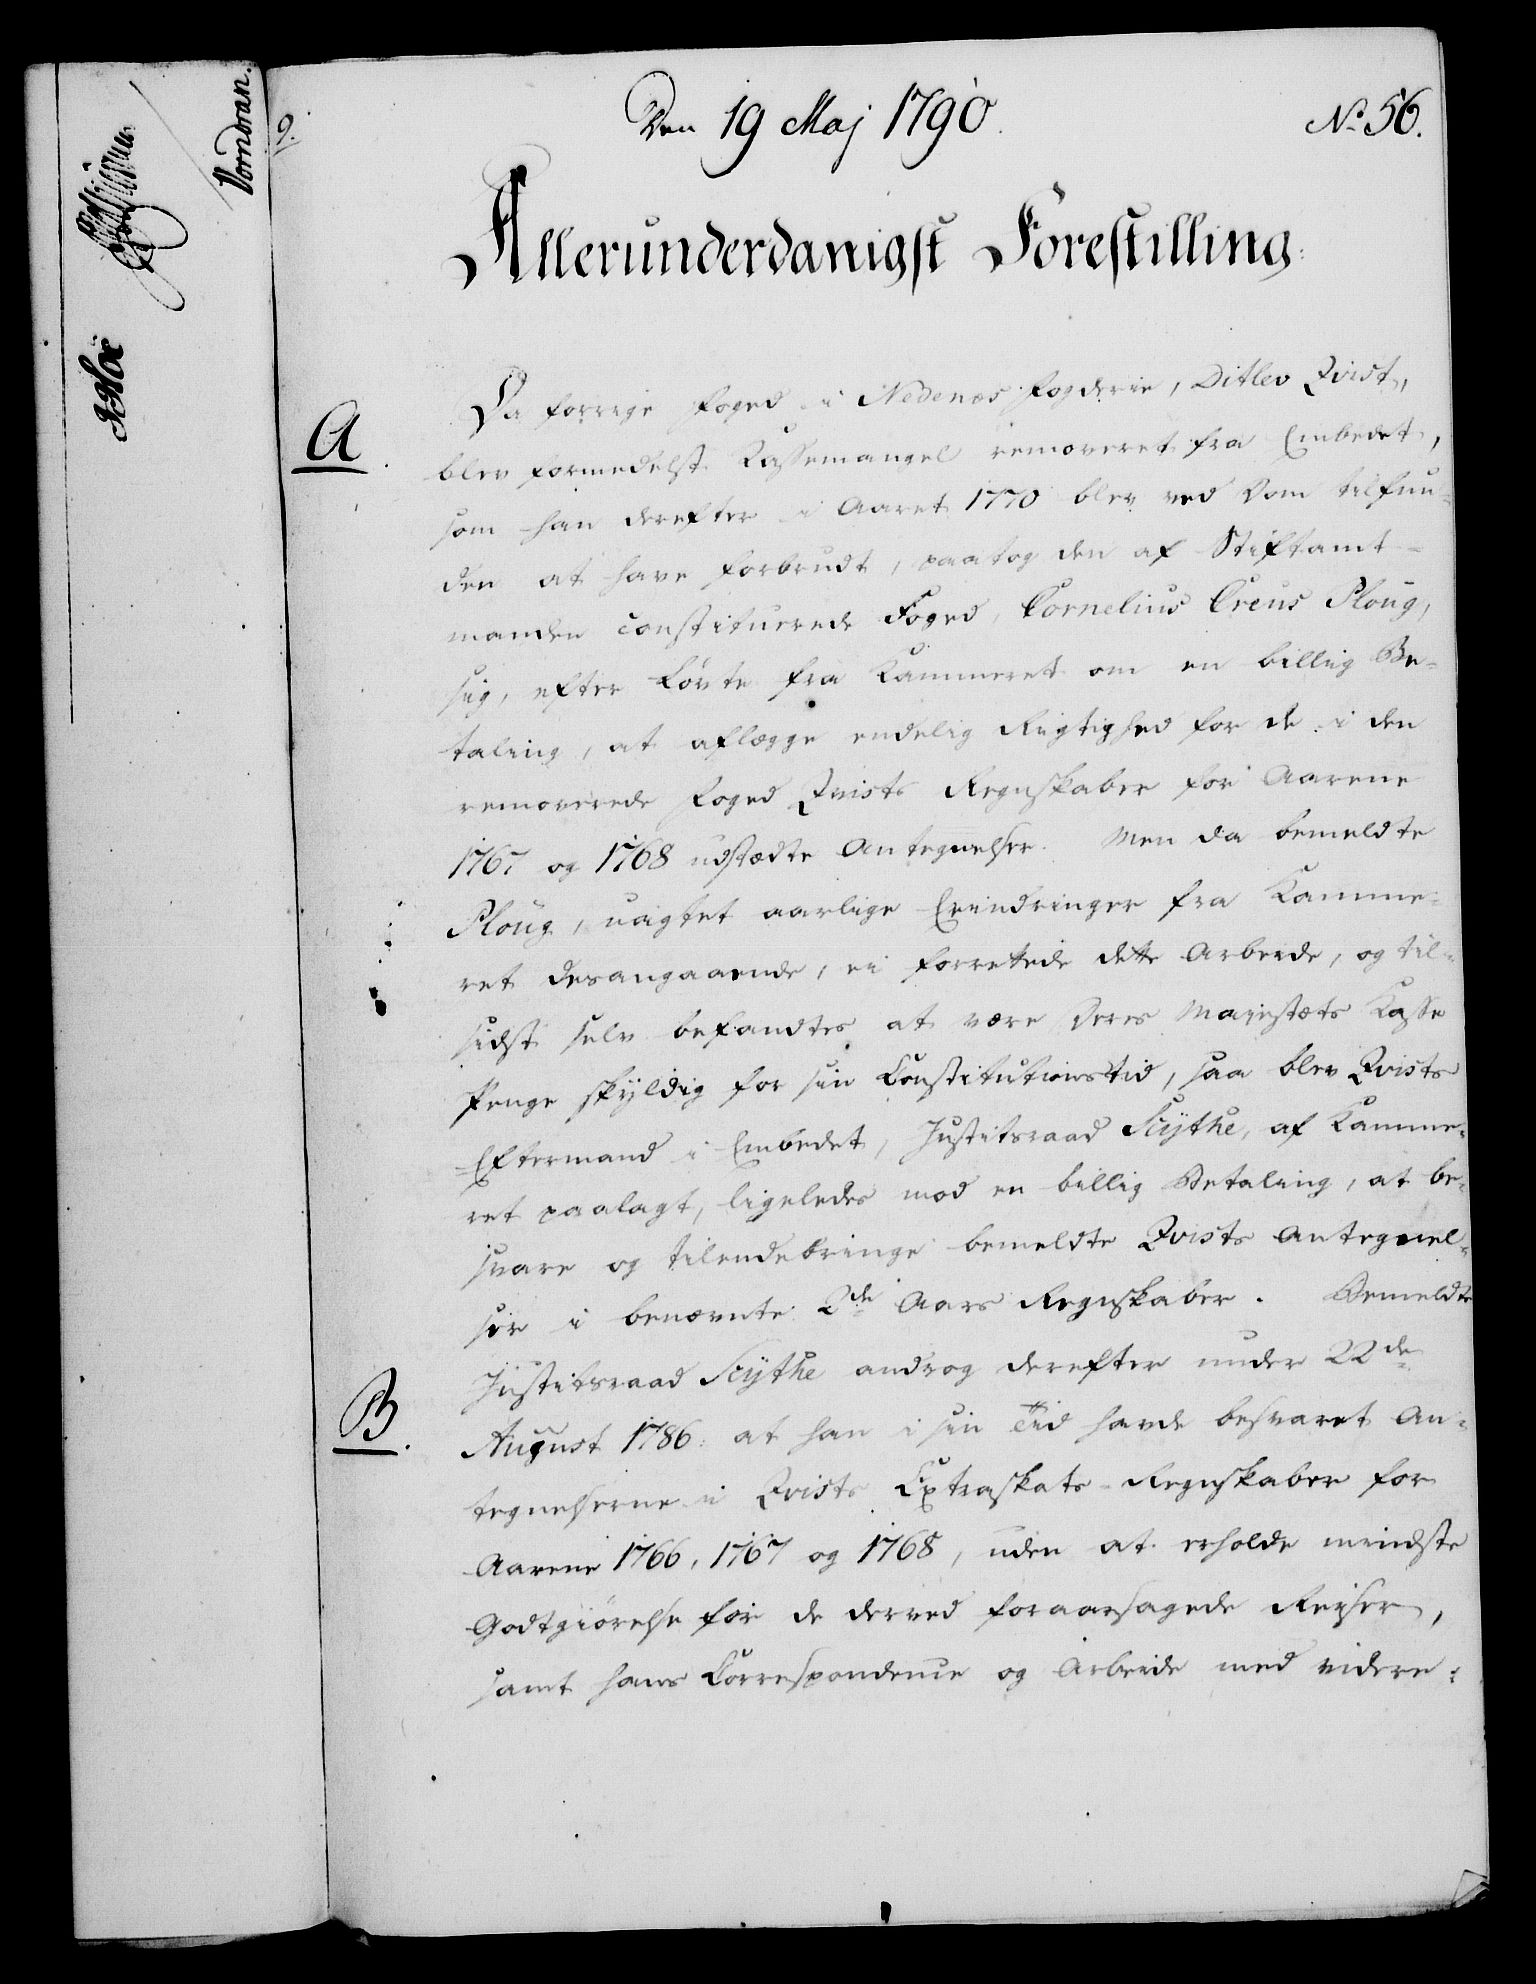 Vorndran.
9.
Den 19 Maj 1790.
No. 56.
Allerunderdanigst Forestilling:
A.
Da forrige Foged i Nedenæs Fogderie, Ditlev Qvist,
blev formedelst Kassemangel removeret fra Embedet,
som han derefter i Aaret 1770 blev ved Dom tilfun-
den at have forbrudt, paatog den af Stiftamt-
manden constituerede Foged, Cornelius Creus Ploug,
sig, efter Løvte fra Kammeret om en billig Be-
taling, at aflægge endelig Rigtighed for de i den
removerede Foged Qvists Regnskaber for Aarene
1767 og 1768 udstædte Antegnelser. Men da bemeldte
Ploug, uagtet aarlige Erindringer fra Kamme-
ret desangaaende, ei forrettede dette Arbeide, og til-
sidst selv befandtes at være Deres Majestæts Kasse
Penge skyldig for sin Constitutionstid, saa blev Qvists
Eftermand i Embedet, Justitsraad Scythe, af Kamme-
ret paalagt, ligeledes mod en billig Betaling, at be-
svare og tilendebringe bemeldte Qvists Antegnel-
ser i benævnte 2de Aars Regnskaber. Bemeldte
B.
Justitsraad Scythe androg derefter under 22de
August 1786: at han i sin Tid havde besvaret An-
tegnelserne i Qvists Extraskats-Regnskaber for
Aarene 1766, 1767 og 1768, uden at erholde mindste
Godtgiørelse for de derved foraarsagede Reyser,
samt hans Correspondence og Arbeide med videre: